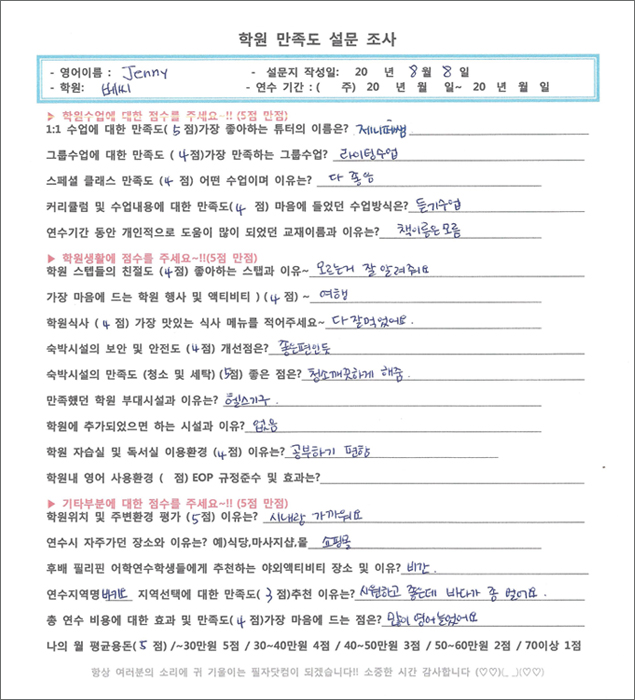 학원 만족도 설문 조사
- 영어이름 : Jenny - 설문지 작성일: 20 년 8월 8일
- 학원: 베씨 - 연수 기간 : ( 주) 20 년 월 일~ 20 년 월 일
▶ 학원수업에 대한 점수를 주세요~!! (5점 만점)
1:1 수업에 대한 만족도( 5점)가장 좋아하는 튜터의 이름은? 제니퍼쌤
그룹수업에 대한 만족도( 4점)가장 만족하는 그룹수업? 라이팅수업
스페셜 클래스 만족도 (4 점) 어떤 수업이며 이유는? 다 좋음
커리큘럼 및 수업내용에 대한 만족도(4 점) 마음에 들었던 수업방식은? 듣기수업
연수기간 동안 개인적으로 도움이 많이 되었던 교재이름과 이유는? 책이름은 모름
▶ 학원생활에 점수를 주세요~!!(5점 만점)
학원 스텝들의 친절도 (4점) 좋아하는 스탭과 이유~ 모르는거 잘 알려줘요
가장 마음에 드는 학원 행사 및 액티비티 ) (4 점) ~ 여행
학원식사 (4 점) 가장 맛있는 식사 메뉴를 적어주세요~ 다 잘먹었어요.
숙박시설의 보안 및 안전도 (4점) 개선점은? 좋은편인듯
숙박시설의 만족도 (청소 및 세탁) (5점) 좋은 점은? 청소깨끗하게 해줌.
만족했던 학원 부대시설과 이유는? 헬스기구.
학원에 추가되었으면 하는 시설과 이유? 없음
학원 자습실 및 독서실 이용환경 (4점) 이유는? 공부하기 편함
학원내 영어 사용환경 ( 점) EOP 규정준수 및 효과는?
▶ 기타부분에 대한 점수를 주세요~!! (5점 만점)
학원위치 및 주변환경 평가 (5점) 이유는? 시내랑 가까워요
연수시 자주가던 장소와 이유는? 예)식당,마사지샵,몰 쇼핑몰
후배 필리핀 어학연수학생들에게 추천하는 야외액티비티 장소 및 이유? 비간.
연수지역명 바기오 지역선택에 대한 만족도( 3점)추천 이유는? 시원하고 좋은데 바다가 좀 멀어요.
총 연수 비용에 대한 효과 및 만족도(4점)가장 마음에 드는 점은? 많이 영어늘었어요
나의 월 평균용돈(5 점) /~30만원 5점 / 30~40만원 4점 / 40~50만원 3점 / 50~60만원 2점 / 70이상 1점
항상 여러분의 소리에 귀 기울이는 필자닷컴이 되겠습니다!! 소중한 시간 감사합니다 (♡♡)(_ _)(♡♡)